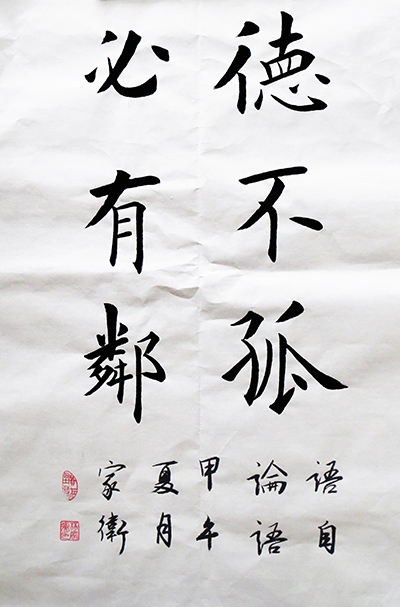 德不孤
必有鄰
語自
論語
甲午
夏月
家衛